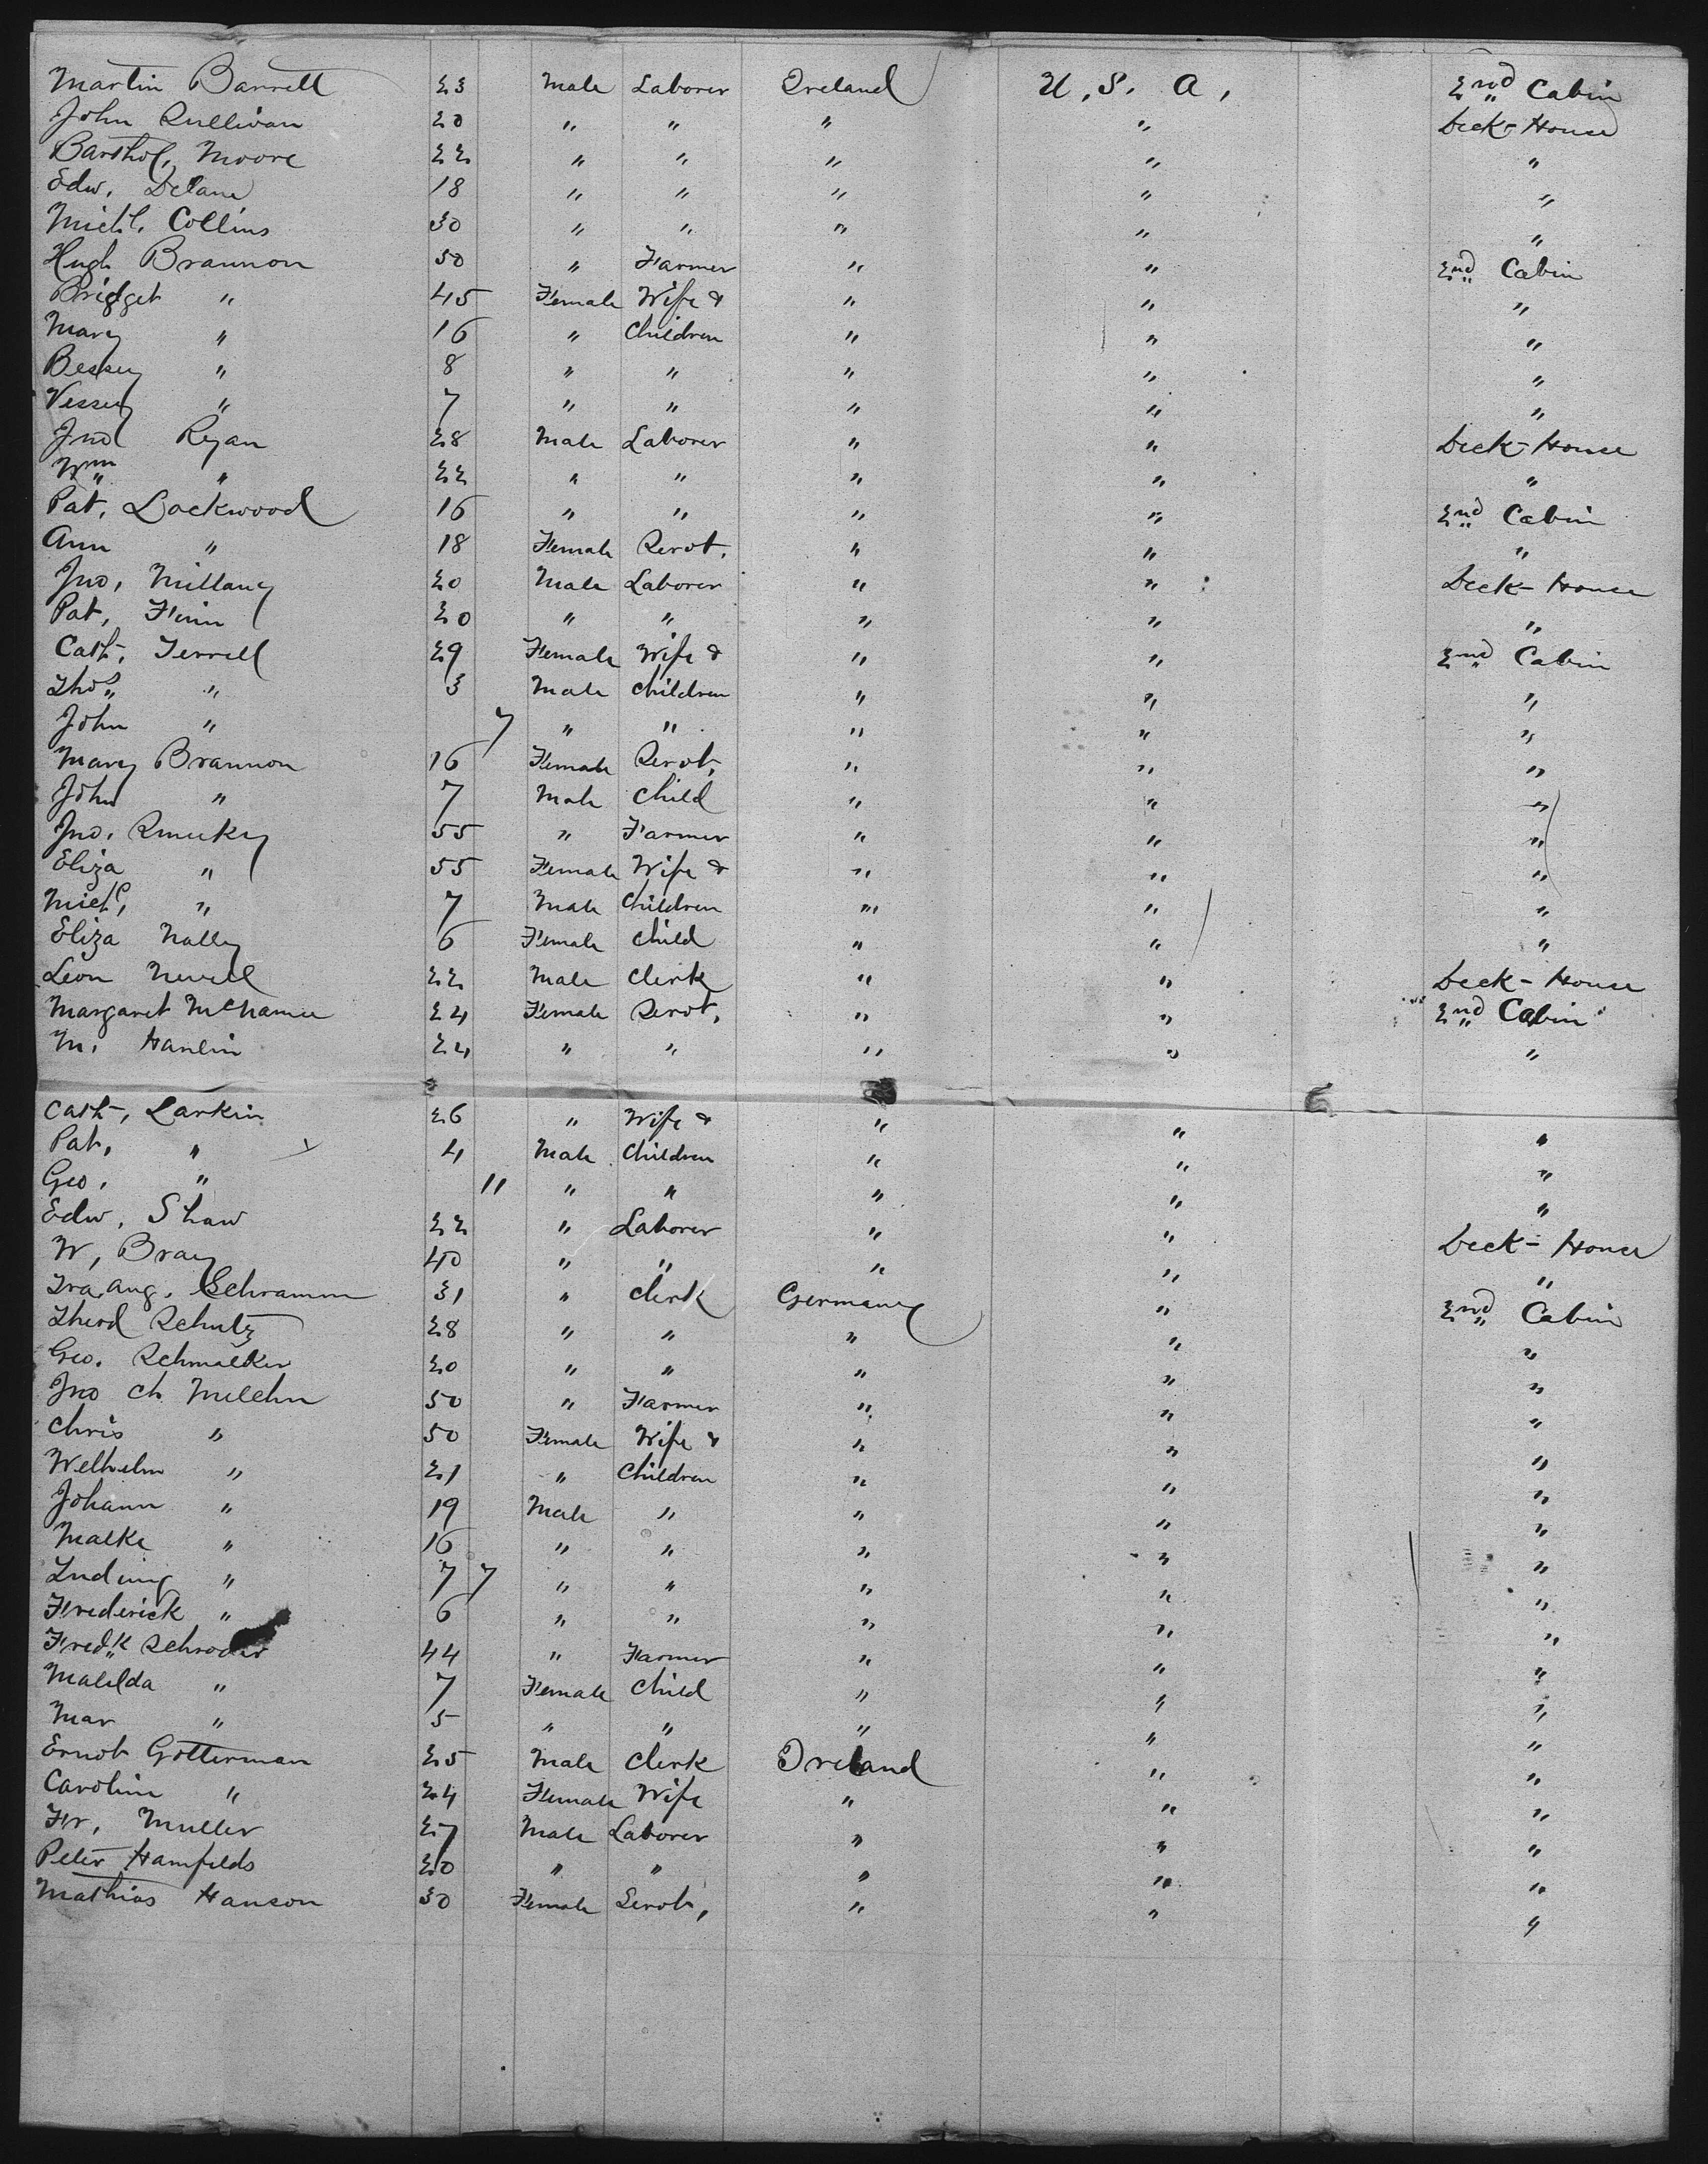 Martin Barrett 23 Male Laborer Ireland U.S.A. 2nd Cabin
John Sullivan 20 " " " " Deck-House
Barthol. Moore 22 " " " " "
Edw. Delane 18 " " " " "
Michl. Collins 30 " " " " "
Hugh Brannon 50 " Farmer " " 2nd Cabin
Bridget " 45 Female Wife & " " "
Mary " 16 " Children " " "
Bessey " 8 " " " " "
Vessey " 7 " " " " "
Jno Ryan 28 Male Laborer " " Deck-House
Wm " 22 " " " " "
Pat. Lockwood 16 " " " " 2nd Cabin
Ann " 18 Female Servt. " " "
Jno. Millany 20 Male Laborer " " Deck-House
Pat. Finn 20 " " " " "
Cath. Terrell 29 Female Wife & " " 2nd Cabin
Thos " 3 Male Children " " "
John " 7 " " " " "
Mary Brannon 16 Female Servt. " " "
John " 7 Male Child " " "
Jno. Smucky 55 " Farmer " " "
Eliza " 55 Female Wife & " " "
Michl. " 7 Male Children " " "
Eliza Nally 6 Female Child " " "
Leon Newell 22 Male Clerk " " Deck-House
Margaret McNamee 24 Female Servt. " " 2nd Cabin
M. Hanlin 24 " " " " "
Cath. Larkin 26 " Wife & " " "
Pat. " 4 Male Children " " "
Geo. " 11 " " " " "
Edw. Shaw 22 " Laborer " " Deck-House
W. Bray 40 " " " " "
Aug. Schramm 31 " Clerk Germany " 2nd Cabin
Schutz 28 " " " " "
Geo. Schmalker 20 " " " " "
Jno Ch Milehn 50 " Farmer " " "
Chris " 50 Female Wife & " " "
Welhelm " 21 " Children " " "
Johann " 19 Male " " " "
Malke " 16 " " " " "
Ludwig " 7 7 " " " " "
Frederick " 6 " " " " "
Fred.k Schroder 44 " Farmer " " "
Malilda " 7 Female Child " " "
Mar " 5 " " " " "
Ernst Gotterman 25 Male Clerk Ireland " "
Caroline " 24 Female Wife " " "
Fr. Muller 27 Male Laborer " " "
Peter Hamfelds 20 " " " " "
Mathias Hanson 30 Female Servt. " " "